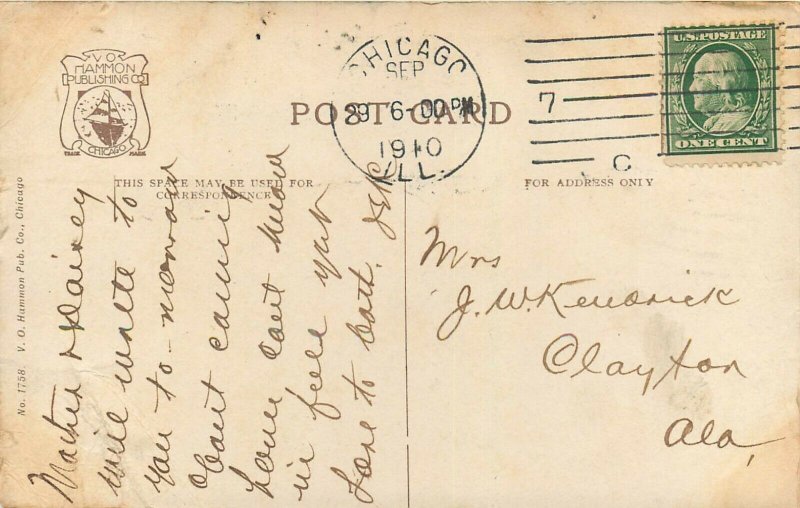 V O
HAMMON
PUBLISHING CO
TRADE MARK
CHICAGO
POST CARD
CHICAGO
SEP
29 6-00PM
1910
ILL.
7
C
U.S. POSTAGE
ONE CENT
THIS SPACE MAY BE USED FOR
CORRESPONDENCE
FOR ADDRESS ONLY
No. 1758. V. O. Hammon Pub. Co., Chicago
Mother & Dairey
will write to
you to-morrow
about coming
home cant
us full yet
Love to both.
Mrs
J. W. Kendrick
Clayton
Ala,